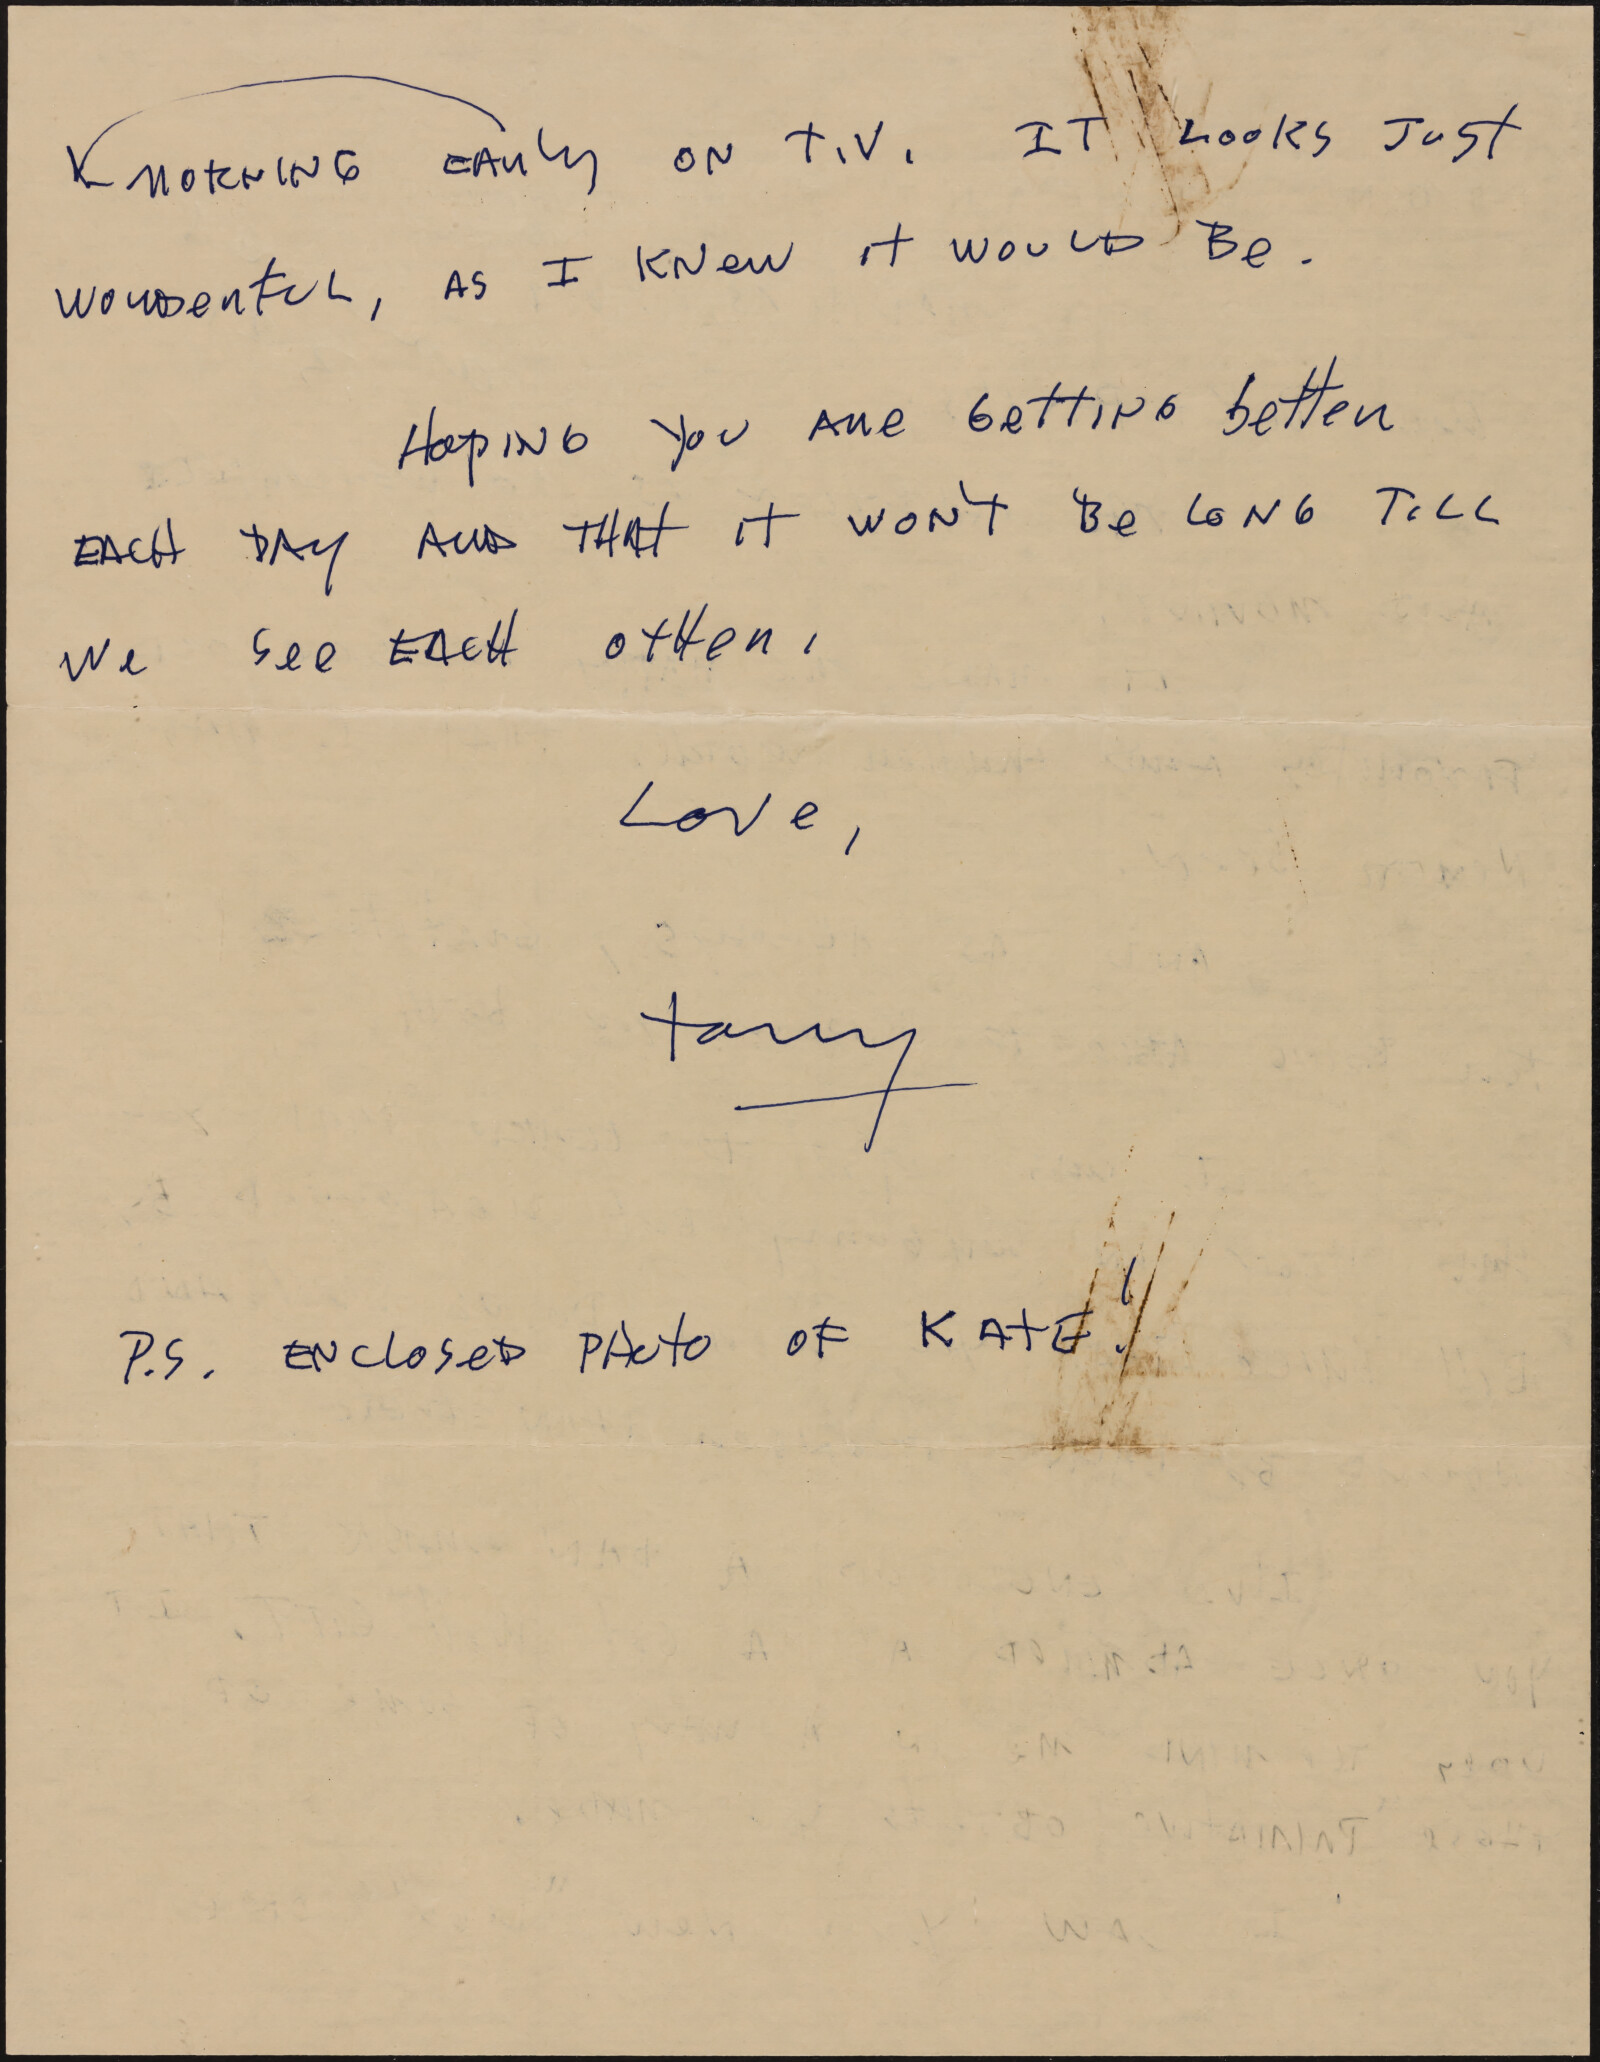 MORNING EARLY ON T.V. IT LOOKS JUST
WONDERFUL, AS I KNEW IT WOULD BE.
HOPING YOU ARE GETTING better
EACH DAY AND THAT IT WON'T BE LONG TILL
We See EACH OTHER.
Love,
P.S. ENCLOSED PHOTO OF KATE!